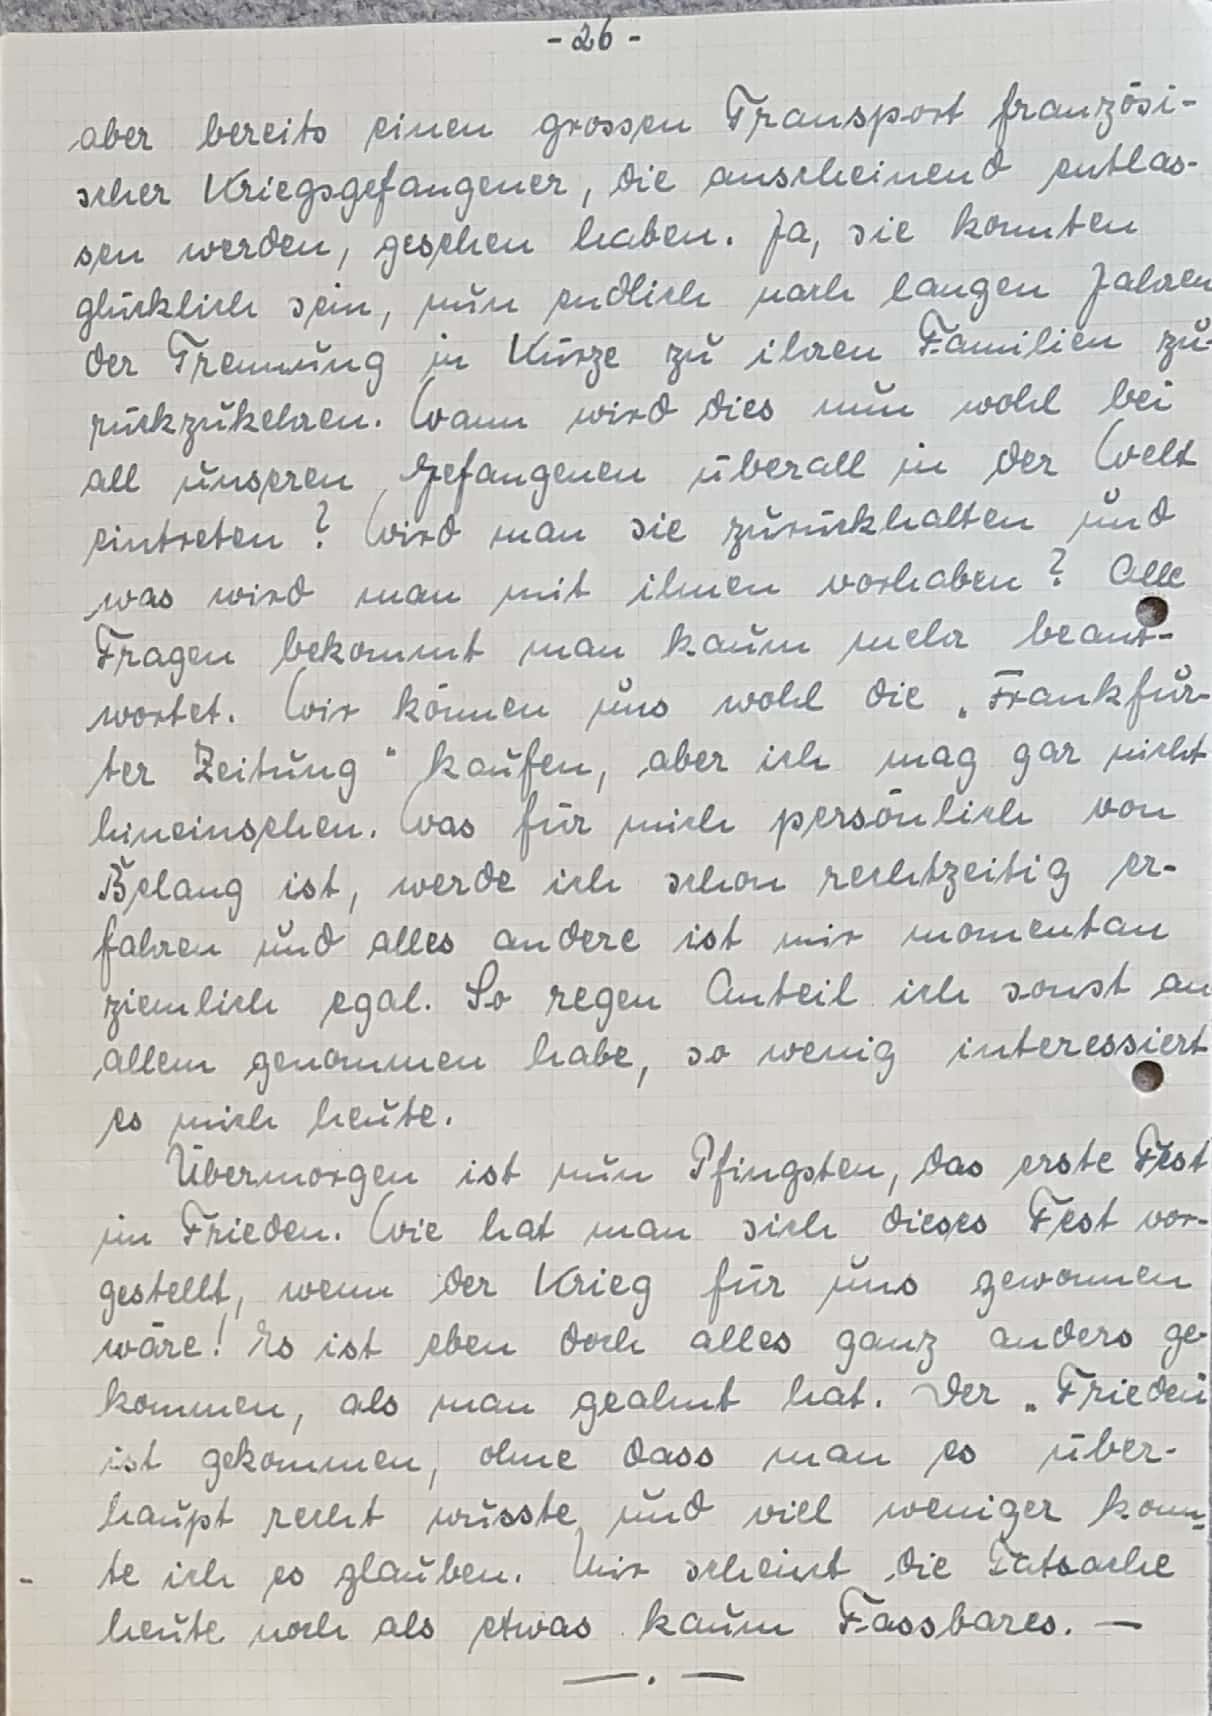 - 26 -
aber bereits einen grossen Transport französi-
scher Kriegsgefangener, die anscheinend entlas-
sen werden, gesehen haben. Ja, sie konnten
glücklich sein, nun endlich nach langen Jahren
der Trennung in Kürze zu ihren Familien zu-
rückzukehren. Wann wird dies nun wohl bei
all unseren Gefangenen überall in der Welt
eintreten? Wird man sie zurückhalten und
was wird man mit ihnen vorhaben? Alle
Fragen bekommt man kaum mehr beant-
wortet. Wir können uns wohl die „Frankfur-
ter Zeitung" kaufen, aber ich mag gar nicht
hineinsehen. Was für mich persönlich von
Belang ist, werde ich schon rechtzeitig er-
fahren und alles andere ist mir momentan
ziemlich egal. So regen Anteil ich sonst an
allem genommen habe, so wenig interessiert
es mich heute.
Übermorgen ist nun Pfingsten, das erste Fest
im Frieden. Wie hat man sich dieses Fest vor-
gestellt, wenn der Krieg für uns gewonnen
wäre! Es ist eben doch alles ganz anders ge-
kommen, als man geahnt hat. Der „Frieden
ist gekommen, ohne dass man es über-
haupt recht wusste und viel weniger konn-
te ich es glauben. Mir scheint die Tatsache
heute noch als etwas kaum Fassbares. —
— . —